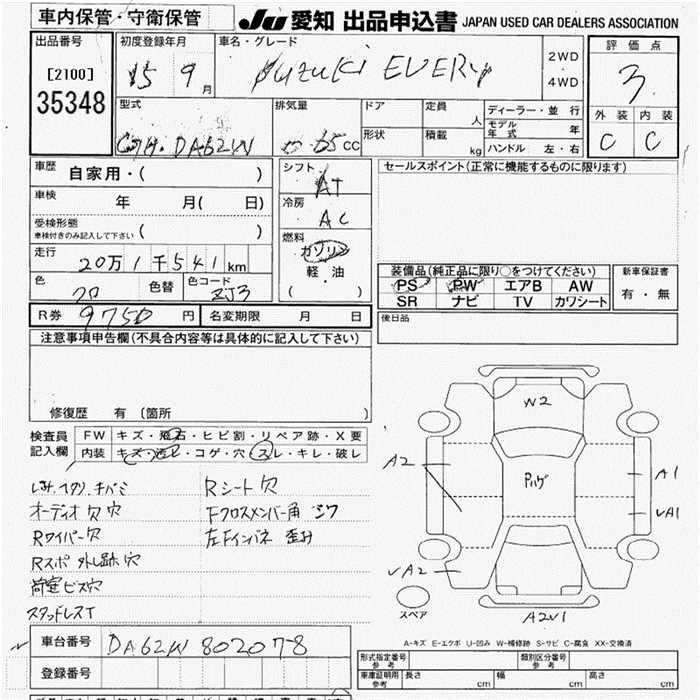 車内保管・守衛保管
JU 愛知 出品申込書 JAPAN USED CAR DEALERS ASSOCIATION
出品番号
[2100]
35348
初度登録年月
15 9月
車名・グレード
Suzuki EVERY
2WD
4WD
評価点
3
外装 内装
C C
型式
DA62W
排気量
65cc
ドア
形状
定員
人
積載
kg
ディーラー・並行
モデル年式 年
ハンドル 左・右
車歴
自家用・( )
車検
年 月( 日)
受検形態
車検付きのみ記入して下さい
( )
走行
20万1千541km
色
クロ
色替
色コード
ZJ3
シフト
AT
冷房
AC
燃料
ガソリン
軽・油
( )
セールスポイント(正常に機能するものに限ります)
装備品(純正品に限り○をつけてください)
PS PW エアB AW
SR ナビ TV カワシート
新車保証書
有・無
後日品
R券 9750円
名変期限 月 日
注意事項申告欄(不具合内容等は具体的に記入して下さい)
修復歴 有 〔箇所 〕
検査員記入欄
FW キズ・飛石・ヒビ割・リペア跡・X要
内装 キズ・汚レ・コゲ・穴・スレ・キレ・破レ
オーディオ欠 穴
Rワイパー欠
Rスポ 外し跡 穴
荷室ビス穴
スタッドレスT
Rシート欠
Fクロスメンバー角 シワ
左Fインパネ 歪み
W2
A2
A1
VA1
VA2
A2V1
スペア
A-キズ E-エクボ U-凹み W-補修跡 S-サビ C-腐食 XX-交換済
車台番号
DA62W 802078
登録番号
形式指定番号
参考
類別区分番号
参考
車庫証明用
参考
長さ cm
幅 cm
高さ cm